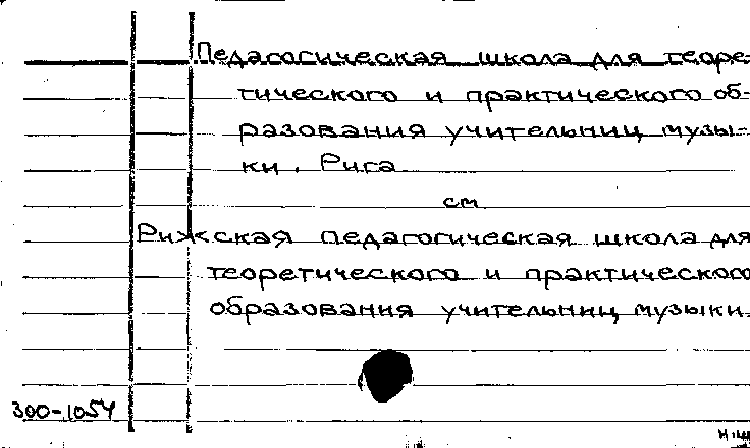 Педагогическая школа для теоре-
тического и практического об-
разования учительниц музы-
ки. Рига
см
Рижская педагогическая школа для
теоретического и практического
образования учительниц музыки.
300-1054